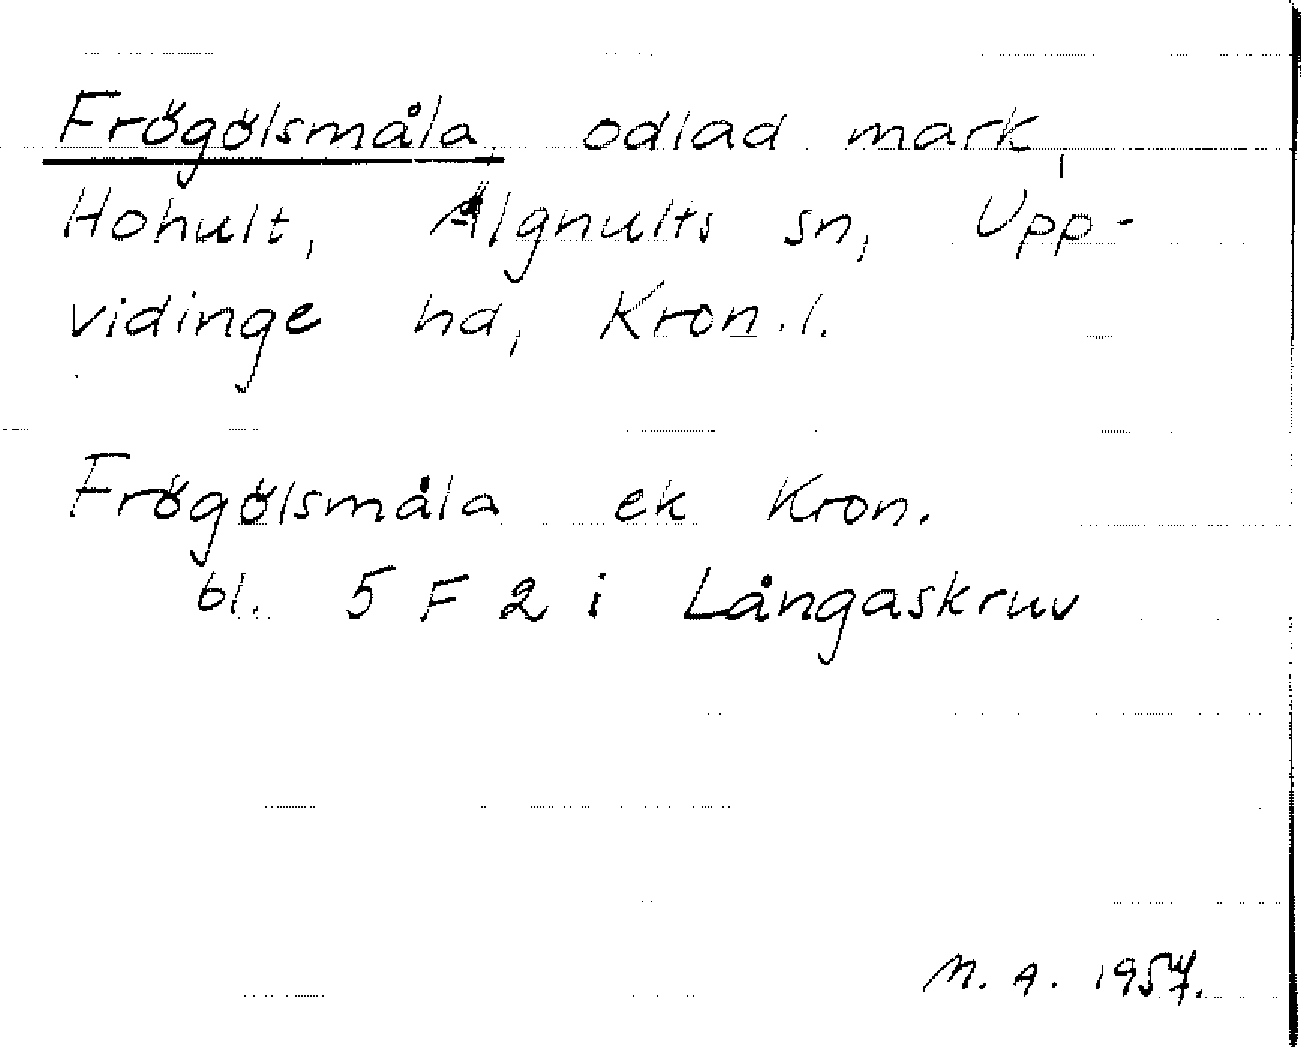 Frögölsmåla, odlad mark,
Hohult, Älgnults sn, Upp-
vidinge hd, Kron.l.
Frögölsmåla ek Kron.
bl. 5 F 2 i Långaskruv
M. A. 1957.